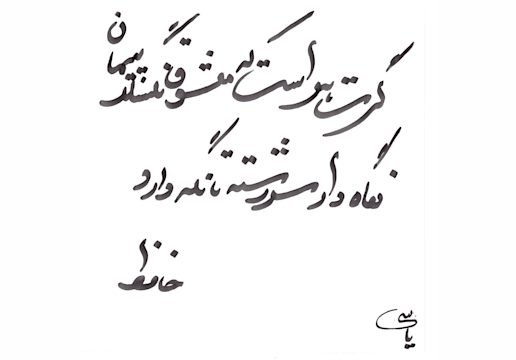 گرت هواست که معشوق نگسلد پیمان
نگاه دار سر رشته تا نگه دارد
حافظ
یاسی